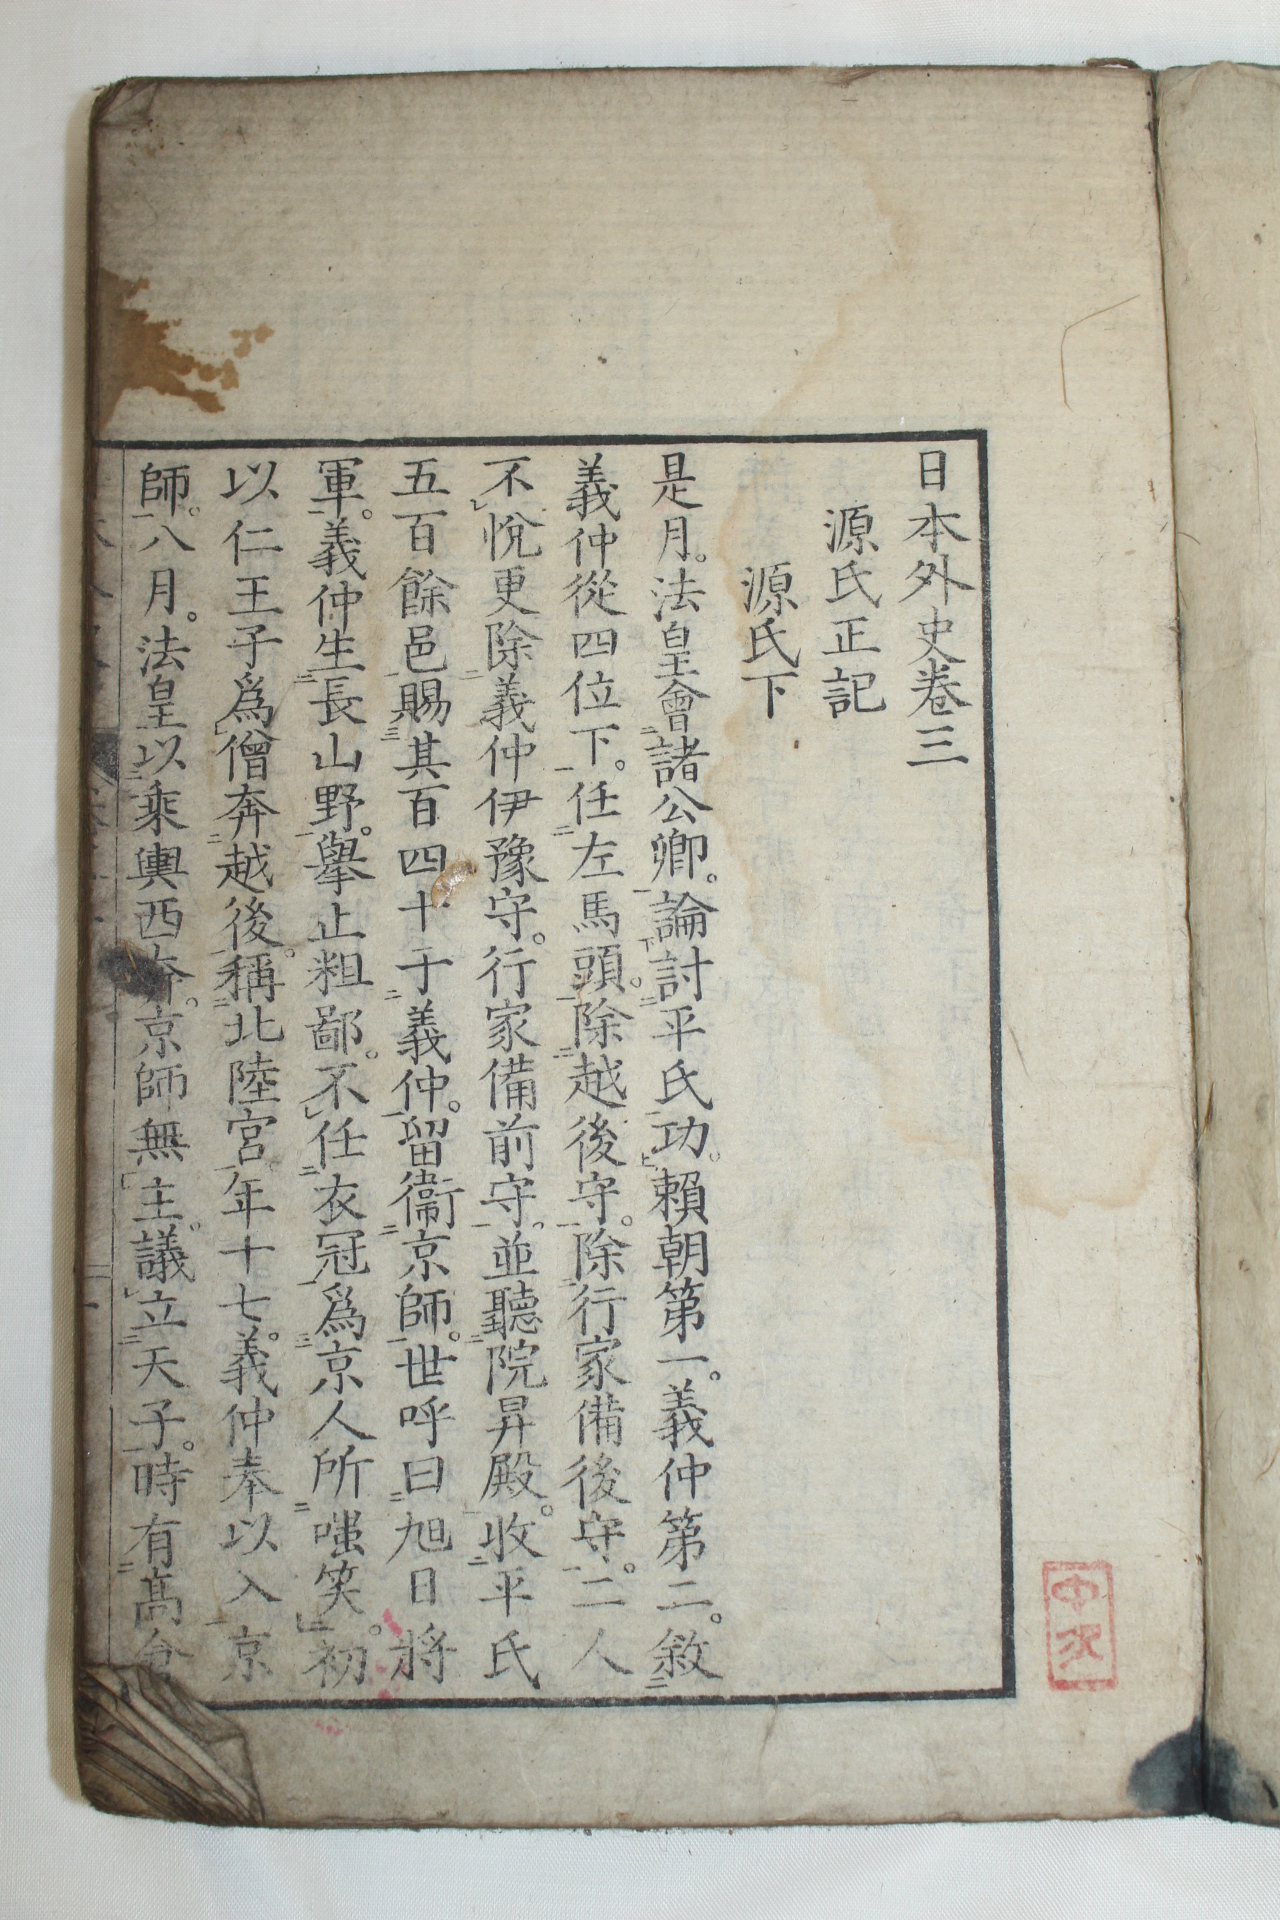 日本外史卷三
源氏正記
源氏下
是月。法皇會諸公卿。論討平氏功。賴朝第一。義仲第二。敘
義仲從四位下。任左馬頭。除越後守。除行家備後守。二人
不悅更除義仲伊豫守。行家備前守。並聽院昇殿。收平氏
五百餘邑賜其百四十于義仲。留衞京師。世呼曰旭日將
軍。義仲生長山野。擧止粗鄙。不任衣冠爲京人所嗤笑。初
以仁王子爲僧奔越後。稱北陸宮年十七。義仲奉以入京
師。八月。法皇以乘輿西奔。京師無主。議立天子。時有高倉